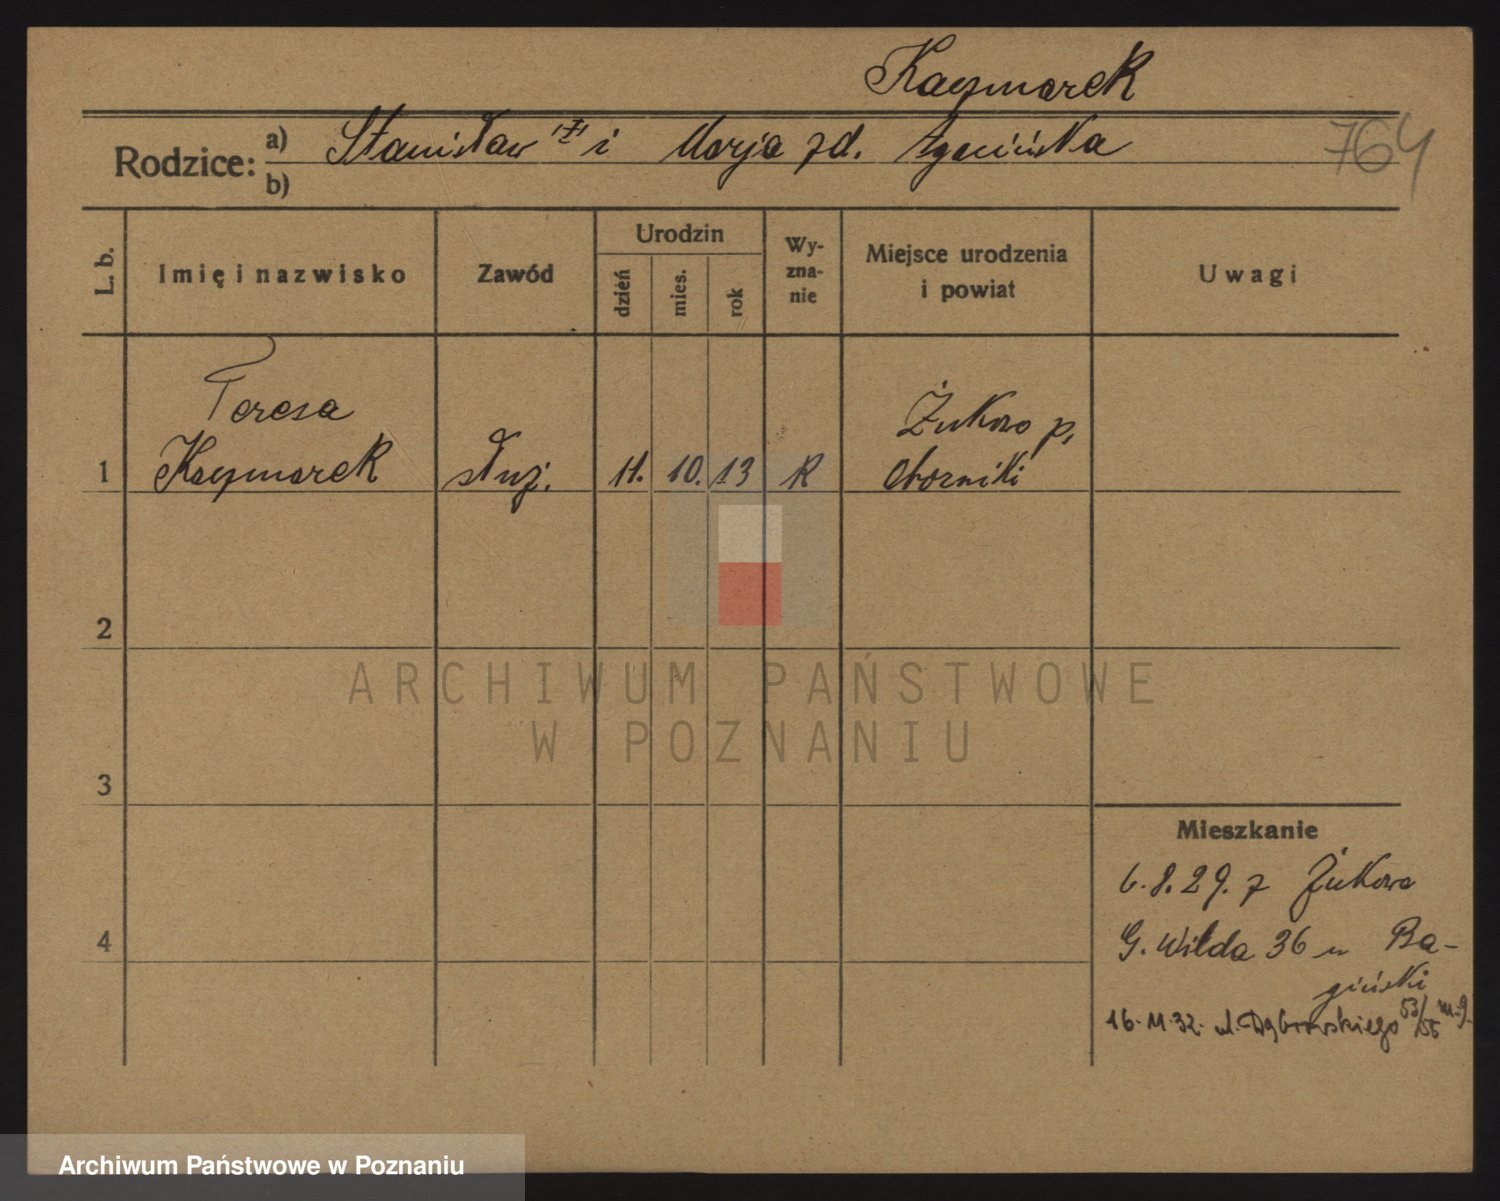 Kaczmarek
764
Rodzice: a) Stanisław i Marja zd.
b)
L. b.
Imię i nazwisko
Zawód
Urodzin
dzień
mies.
rok
Wy-
zna-
nie
Miejsce urodzenia
i powiat
Uwagi
Teresa
Żukowo p.
1 Kaczmarek służ. 11. 10. 13 R Oborniki
2
3
4
Mieszkanie
6.8.29. z Żukowa
G. Wilda 36 u Ba-
giński
16.11.32. ul. Dąbrowskiego 53/55 m. 9.
ARCHIWUM PAŃSTWOWE
W POZNANIU
Archiwum Państwowe w Poznaniu